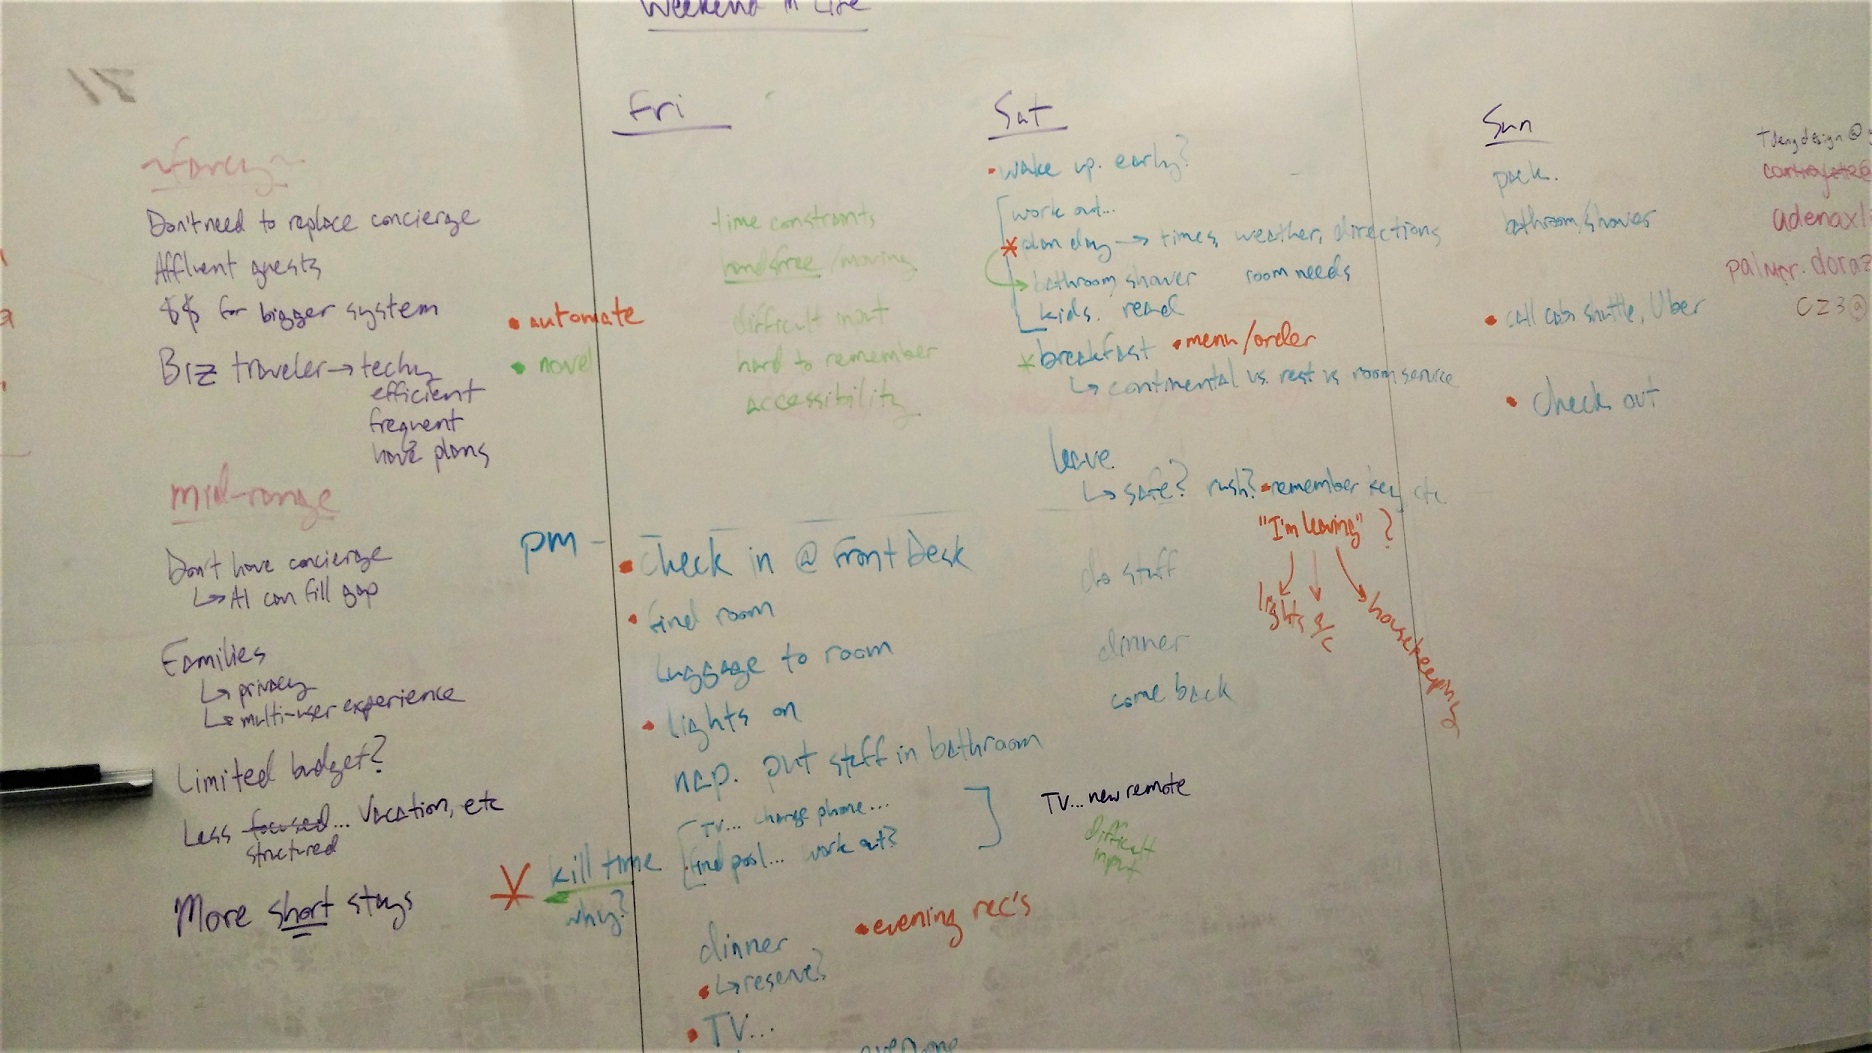 Weekend in Life
~Fancy~
Don't need to replace concierge
Affluent guests
$$ for bigger system
Biz traveler → techy
efficient
frequent
have plans
• automate
• novel
mid-range
Don't have concierge
↳ AI can fill gap
Families
↳ privacy
↳ multi-user experience
Limited budget?
Less focused... vacation, etc
structured
More short stays
Fri
time constraints
handsfree/moving
difficult input
hard to remember
accessibility
pm -
• Check in @ Front Desk
• find room
luggage to room
• lights on
nap. put stuff in bathroom
TV... charge phone...
find pool... work out?
* kill time
why?
TV... new remote
difficult
input
dinner
• evening rec's
• ↳ reserve?
• TV...
Sat
• wake up. early?
work out...
* plan day → times, weather, directions
bathroom, shower room needs
kids. read
* breakfast • menu/order
↳ continental vs. rest vs room service
leave
↳ safe? rush? • remember key etc
"I'm leaving"?
lights
a/c
housekeeping
do stuff
dinner
come back
Sun
pack.
bathroom/shower
• call cab, shuttle, Uber
• Check out
adenaxl
palmer.doraz
cz3@